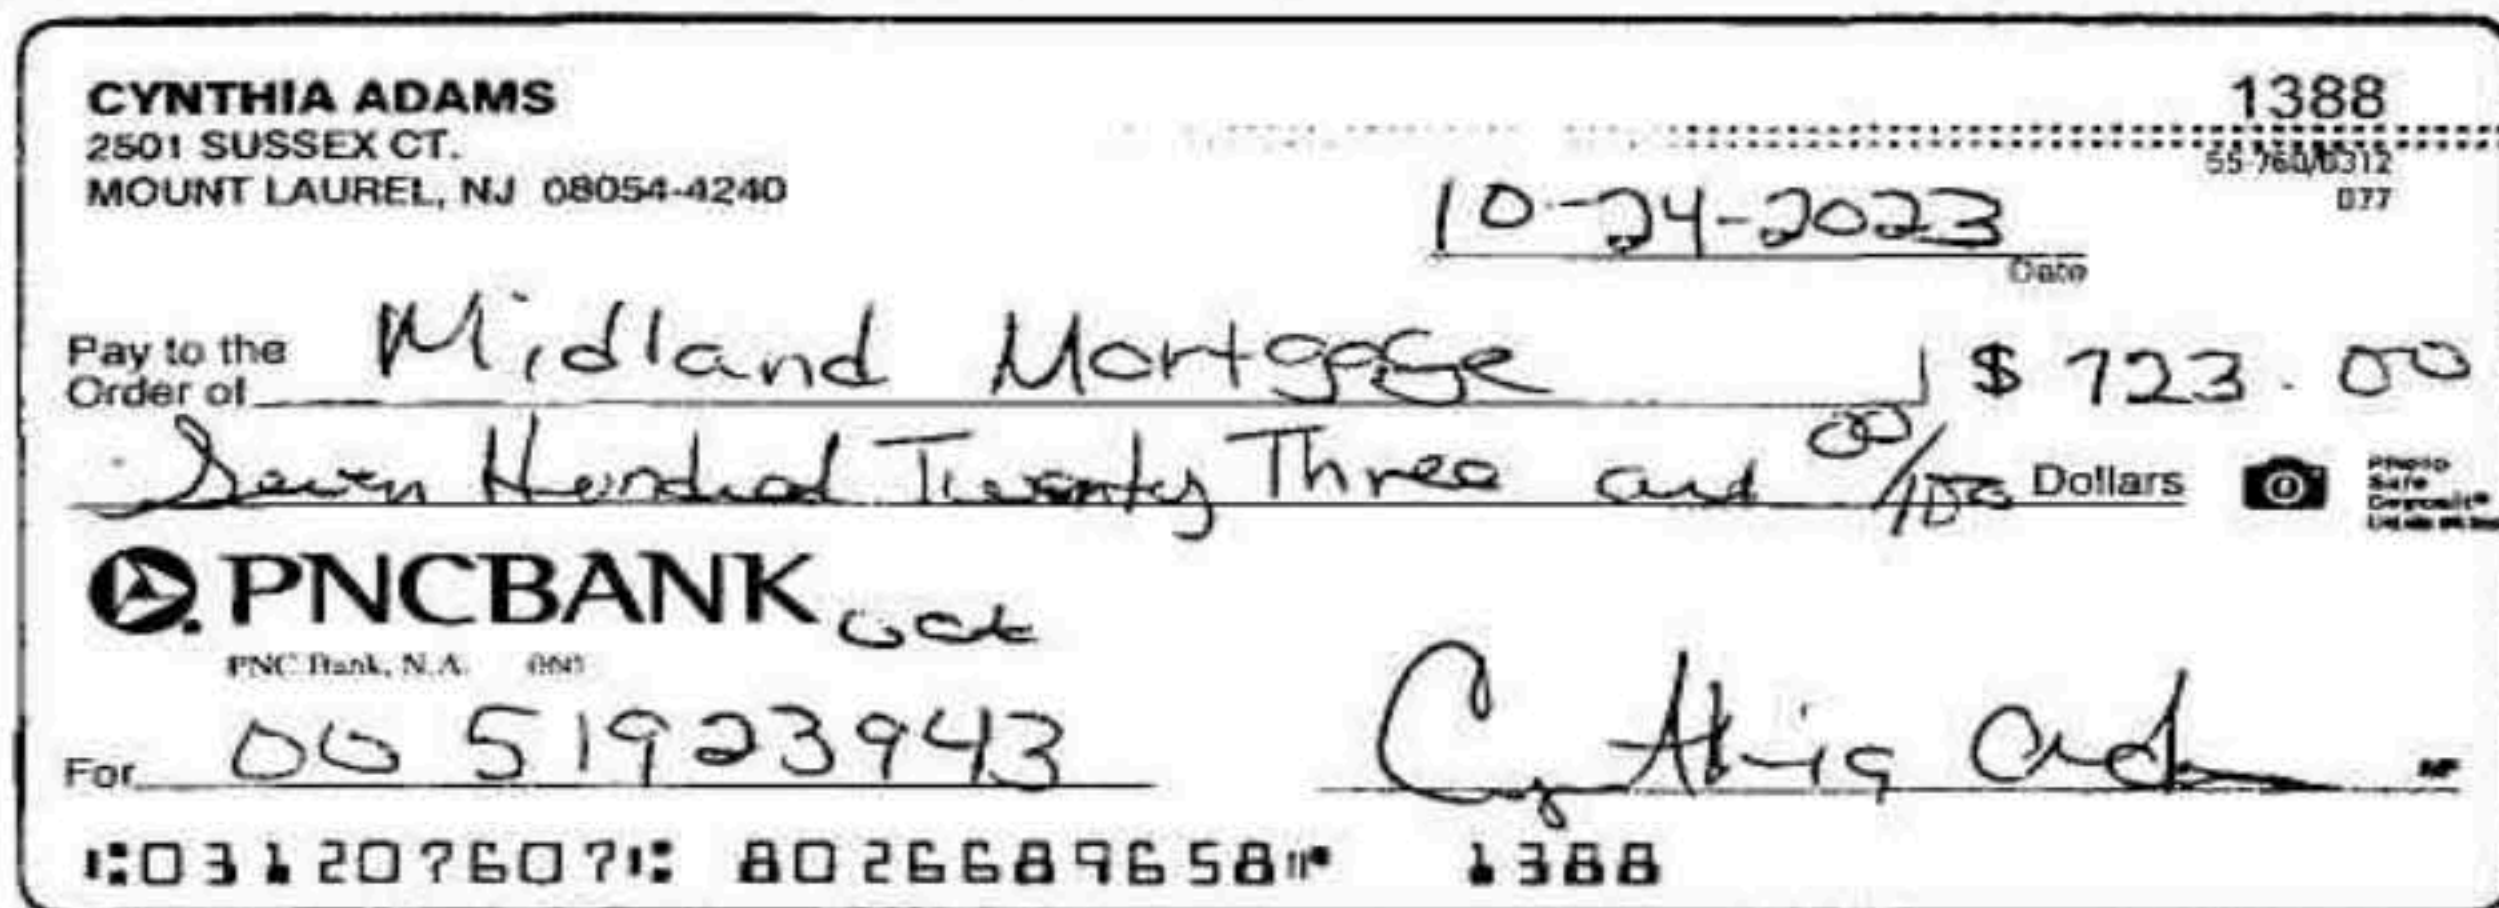 CYNTHIA ADAMS
1388
2501 SUSSEX CT.
55-760/0312
MOUNT LAUREL, NJ 08054-4240
077
10-24-2023
Date
Pay to the Order of Midland Mortgage $ 723.00
Seven Hundred Twenty Three and 00/100 Dollars
Photo Safe Deposit®
PNCBANK
PNC Bank, N.A.
For 00 51923943
Cynthia Adams
⑆031207607⑆ 8026689658⑈ 1388